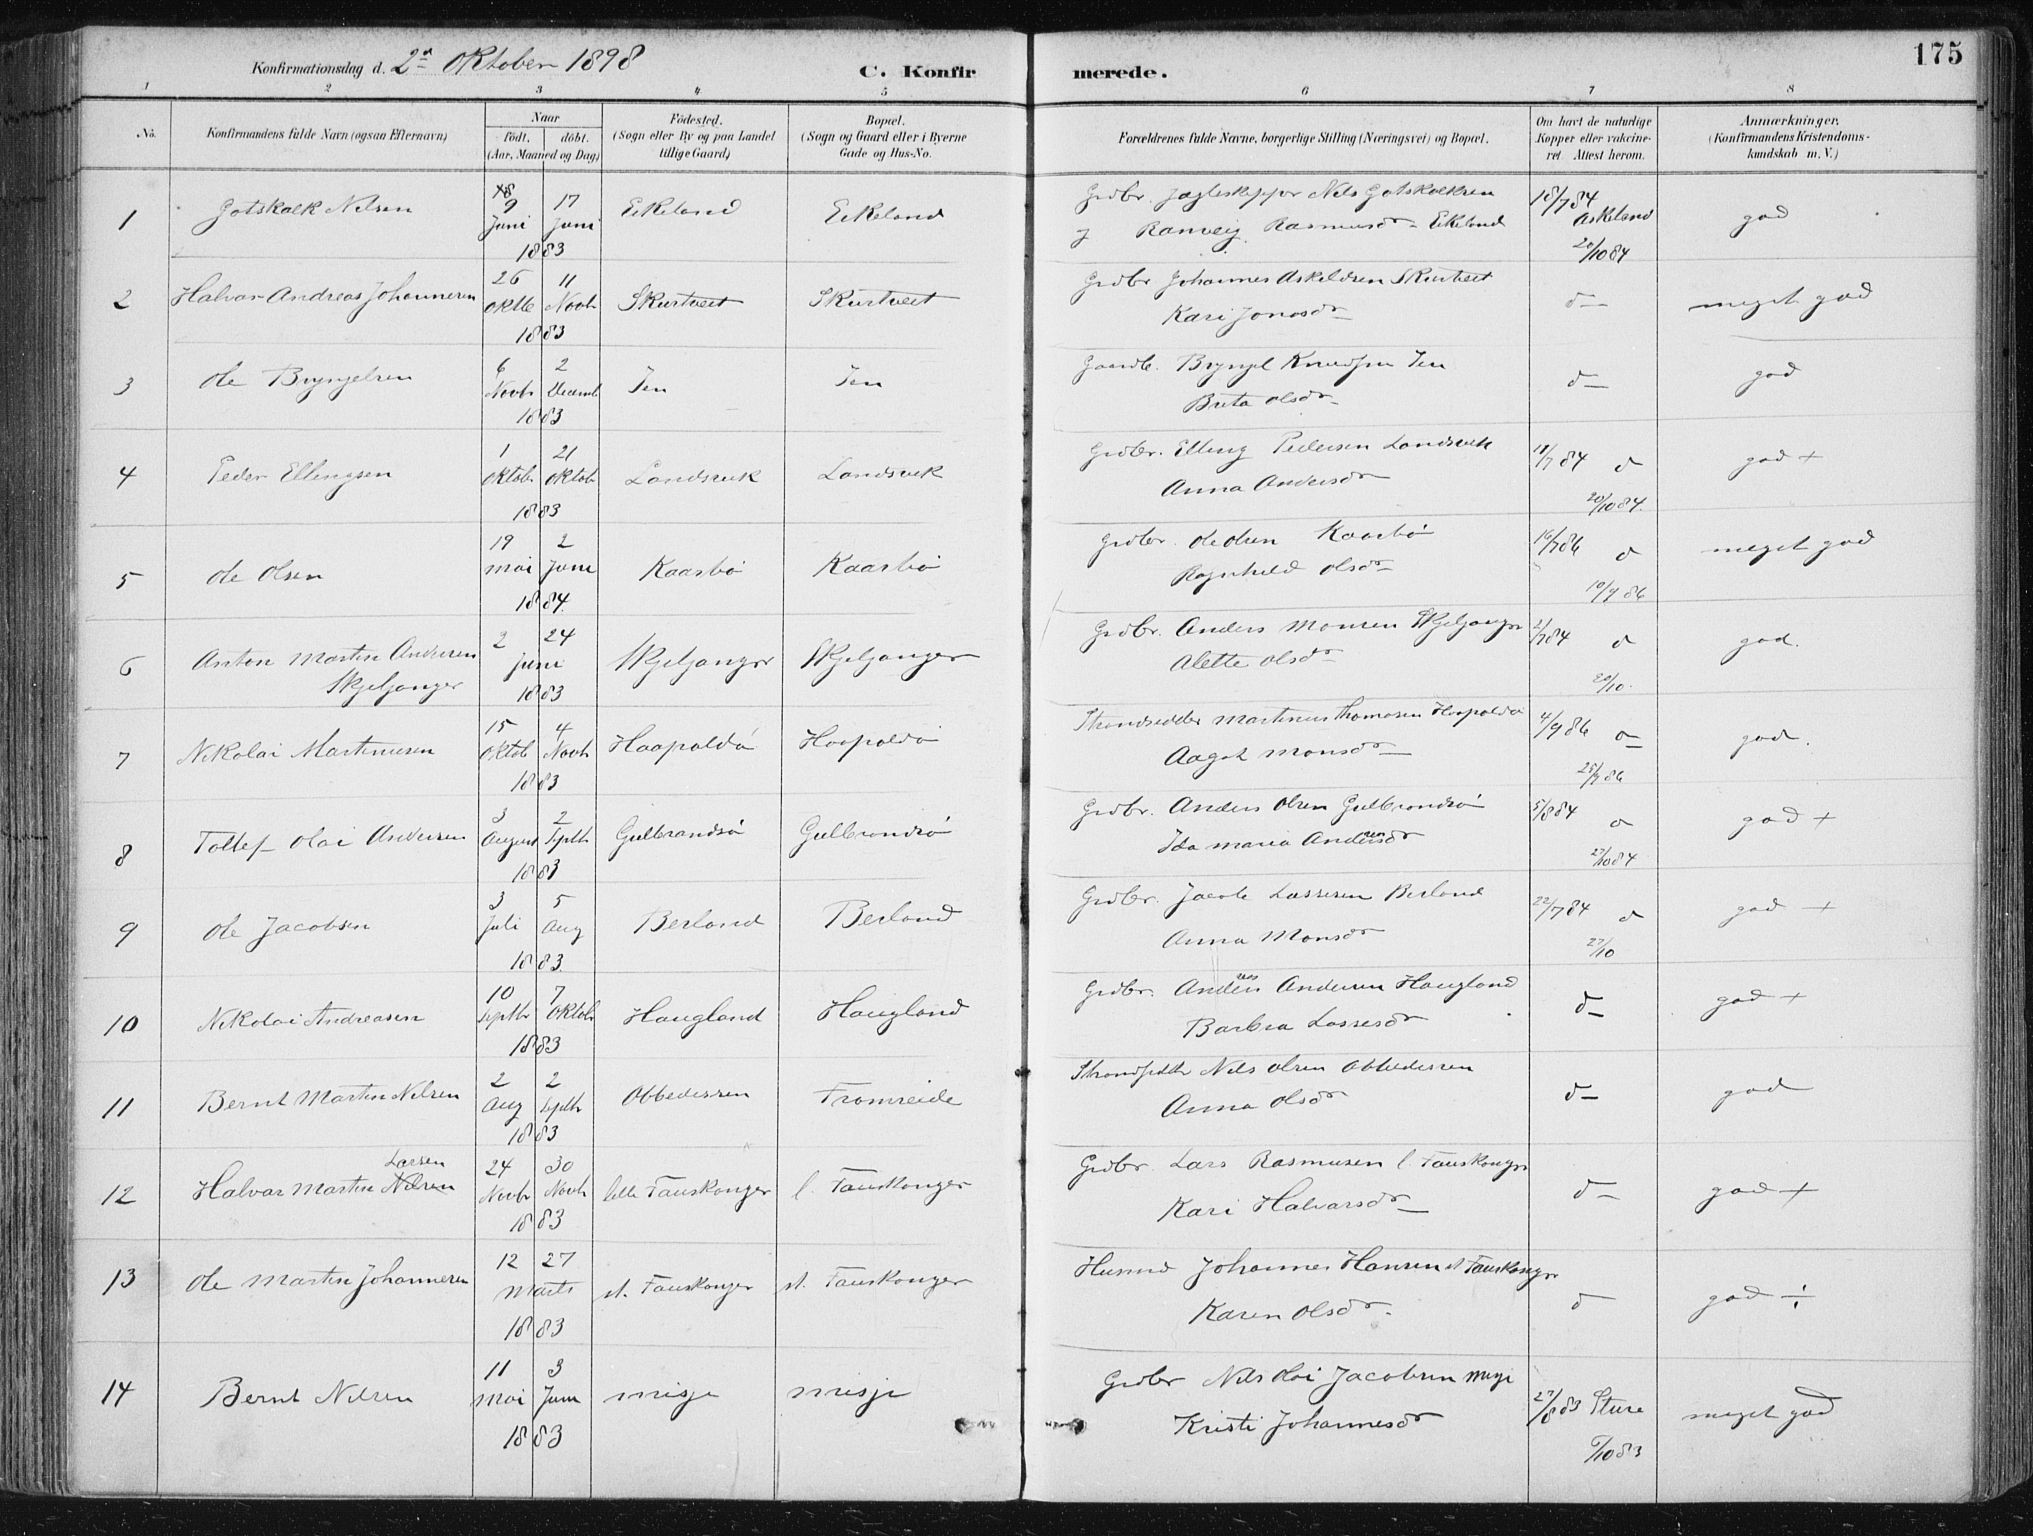 Konfirmationsdag d. 2den Oktober 1898
C. Konfirmerede.
175
1 2 3 4 5 6 7 8
No. Konfirmandens fulde Navn (ogsaa Efternavn) Naar født, døbt. (Aar, Maaned og Dag) Fødested. (Sogn eller By og paa Landet tillige Gaard) Bopæl. (Sogn og Gaard eller i Byerne Gade og Hus-No. Forældrenes fulde Navne, borgerlige Stilling (Næringsvei) og Bopæl. Om havt de naturlige Kopper eller vakcineret Attest herom. Anmærkninger. (Konfirmandens Kristendomskundskab m. V.)
1 Gotskalk Nilsen 9 Juni 17 Juni 1883 Eikeland Eikeland Grdbr. Nils Gotskalksen 18/7 84 Askeland god
Ranveig Rasmusdr Eikeland 20/10 84
2 Halvar Andreas Johannesen 26 Oktb 11 Novb 1883 Skurtveit Skurtveit Grdbr Johannes Askeldsen Skurtveit d– meget god
Kari Jonasdr
3 Ole Bryngelsen 6 Novbr 2 Decemb 1883 Jen Jen Gaardb. Bryngel Knudsen Jen d– god
Brita Olsdr
4 Peder Ellingsen 1 Oktob 21 Oktob 1883 Landsvik Landsvik Grdbr. Elling Pedersen Landsvik 18/7 84 d god +
Anna Andersdr 20/10 84.
5 Ole Olsen 19 Mai 2 Juni 1884. Kaarbø Kaarbø Grdbr. Ole Olsen Kaarbø 16/7 86 d meget god
Ragnhild Olsdr 10/9 86
6 Anton Martin Andersen 2 24 Juni 1883 Skjeljanger Skjeljanger Grdbr. Anders Monsen Skjeljanger 21/7 84 d god.
Skjeljanger Alette Olsdr 20/10.
7 Nikolai Martinusen 15 Oktob 4 Novb 1883 Haapoldø Haapoldø Strandsidder Martinus Thomasen Haapoldø 4/9 86 d god.
Aagot Monsdr
8 Tollef Olai Andersen 3 August 2 Septb 1883 Gulbrandsø Gulbrandsø Grdbr. Anders Olsen Gulbrandsø 5/8 84 d god +
Ida Maria Andersdr 27/10 84
9 Ole Jacobsen 3 Juli 5 Aug 1883. Berland Berland Grdbr. Jacob Lassesen Berland 22/7 84 d god +
Anna Monsdr 27/10
10 Nikolai Andreasen 10 Septbr 7 Oktob 1883 Haugland Haugland Grdbr. Andreas Andersen Haugland d– god +
Barbra Lassesdr
11 Bernt Martin Nilsen 2 Aug 2 Septb 1883 Obbedissen Fromreide Nils Olsen Obbedissen d– god
Anna Olsdr
12 Halvar Martin Nilsen Larsen 24 Novbr 30 Novb 1883 lille Fauskanger l. Fauskanger Grdbr. Lars Rasmusen l. Fauskanger d– god +
Kari Halvarsdr
13 Ole Martin Johannesen 12 27 Marts 1883 st. Fauskanger st. Fauskanger Husmd Johannes Hansen st Fauskanger d god ÷
Karen Olsdr.
14 Bernt Nilsen 11 Mai 3 Juni 1883 Misje Misje Grdbr Nils Olai Jacobsen Misje 27/8 83 Sture meget god
Kristi Johannesdr